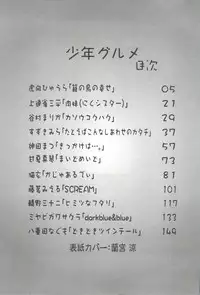 少年グルメ
目次
虎向ひゅうら「籠の鳥の幸せ」 05
上連雀三平「肉妹(にくシスター)」 21
谷村まりか「カソウコウハク」 29
すずきみら「たとえばこんなしあわせのカタチ」 37
神田まつ「きっかけは…。」 57
甘夏柔琴「まいどめいど」 73
猫む「かじゃあるでぃ」 81
藤若みえる「SCREAM」 101
綾野三十二「ヒミツなフタリ」 117
ミヤビガワサクラ「darkblue&blue」 133
八重田なぐも「ときどきツインテール」 149
表紙カバー:藺宮 涼